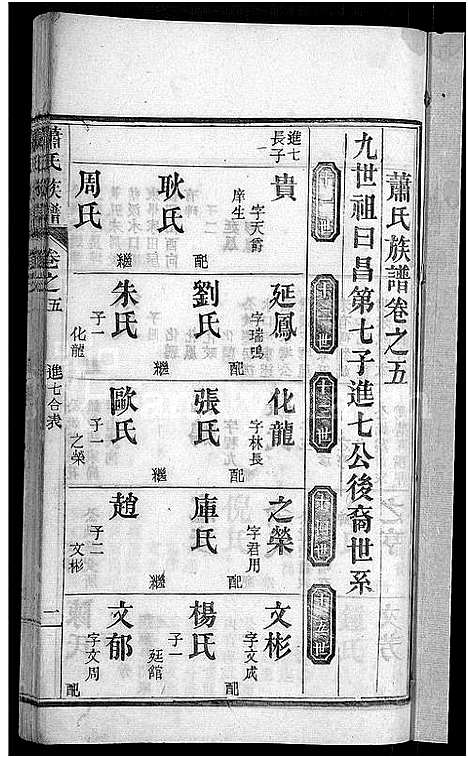 蕭氏族譜卷之五
九世祖曰昌第七子進七公後裔世系
十一世
十二世
十三世
十四世
十五世
進七
長子
貴
字天爵
庠生
配
耿氏
繼
周氏
延鳳
配
劉氏
繼
朱氏
子一
化龍
化龍
字林長
配
張氏
繼
歐氏
子一
之榮
之榮
字君用
配
庫氏
繼
趙
子二
文彬
文彬
字文成
配
楊氏
子一
廷館
文郁
字文周
配
蕭氏族譜
卷之五
進七合表
一